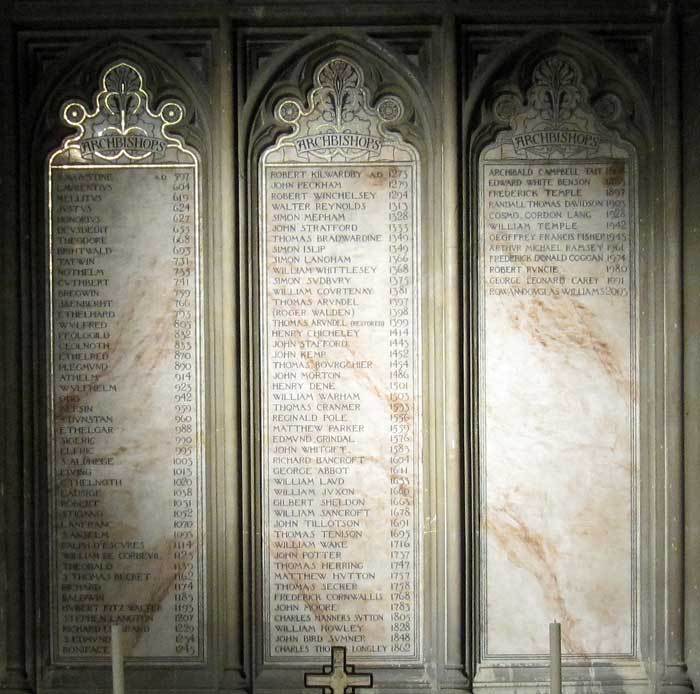 ARCHBISHOPS
AUGUSTINE A.D. 597
LAURENTIUS 604
MELLITUS 619
JUSTUS 624
HONORIUS 627
DEVSDEDIT 653
THEODORE 668
BRIHTWALD 693
TATWIN 731
NOTHELM 735
CVTHBERT 741
BREGWIN 759
JAENBERHT 766
ETHELHARD 793
WVLFRED 805
FEOLOGILD 832
CEOLNOTH 833
ETHELRED 870
PLEGMVND 890
ATHELM 914
WVLFHELM 923
ODO 942
AELFSIN 959
S. DVNSTAN 960
ETHELGAR 988
SIGERIC 990
ELFRIC 995
S. ALPHEGE 1005
LIVING 1013
ETHELNOTH 1020
EADSIGE 1038
ROBERT 1051
STIGAND 1052
LANFRANC 1070
S. ANSELM 1093
RALPH D'ESCVRES 1114
WILLIAM DE CORBEVIL 1123
THEOBALD 1139
S. THOMAS BECKET 1162
RICHARD 1174
BALDWIN 1185
HVBERT FITZ WALTER 1193
STEPHEN LANGTON 1207
RICHARD GRAND 1229
S. EDMVND 1234
BONIFACE 1245
ARCHBISHOPS
ROBERT KILWARDBY A.D. 1273
JOHN PECKHAM 1279
ROBERT WINCHELSEY 1294
WALTER REYNOLDS 1313
SIMON MEPHAM 1328
JOHN STRATFORD 1333
THOMAS BRADWARDINE 1349
SIMON ISLIP 1349
SIMON LANGHAM 1366
WILLIAM WHITTLESEY 1368
SIMON SVDBVRY 1375
WILLIAM COVRTENAY 1381
THOMAS ARVNDEL 1397
(ROGER WALDEN) 1398
THOMAS ARVNDEL (RESTORED) 1399
HENRY CHICHELEY 1414
JOHN STAFFORD 1443
JOHN KEMP 1452
THOMAS BOVRGCHIER 1454
JOHN MORTON 1486
HENRY DENE 1501
WILLIAM WARHAM 1503
THOMAS CRANMER 1533
REGINALD POLE 1556
MATTHEW PARKER 1559
EDMVND GRINDAL 1576
JOHN WHITGIFT 1583
RICHARD BANCROFT 1604
GEORGE ABBOT 1611
WILLIAM LAVD 1633
WILLIAM JVXON 1660
GILBERT SHELDON 1663
WILLIAM SANCROFT 1678
JOHN TILLOTSON 1691
THOMAS TENISON 1695
WILLIAM WAKE 1716
JOHN POTTER 1737
THOMAS HERRING 1747
MATTHEW HVTTON 1757
THOMAS SECKER 1758
FREDERICK CORNWALLIS 1768
JOHN MOORE 1783
CHARLES MANNERS SVTTON 1805
WILLIAM HOWLEY 1828
JOHN BIRD SVMNER 1848
CHARLES THOMAS LONGLEY 1862
ARCHBISHOPS
ARCHIBALD CAMPBELL TAIT 1868
EDWARD WHITE BENSON 1883
FREDERICK TEMPLE 1897
RANDALL THOMAS DAVIDSON 1903
COSMO GORDON LANG 1928
WILLIAM TEMPLE 1942
GEOFFREY FRANCIS FISHER 1945
ARTHUR MICHAEL RAMSEY 1961
FREDERICK DONALD COGGAN 1974
ROBERT RVNCIE 1980
GEORGE LEONARD CAREY 1991
ROWAN DOUGLAS WILLIAMS 2003